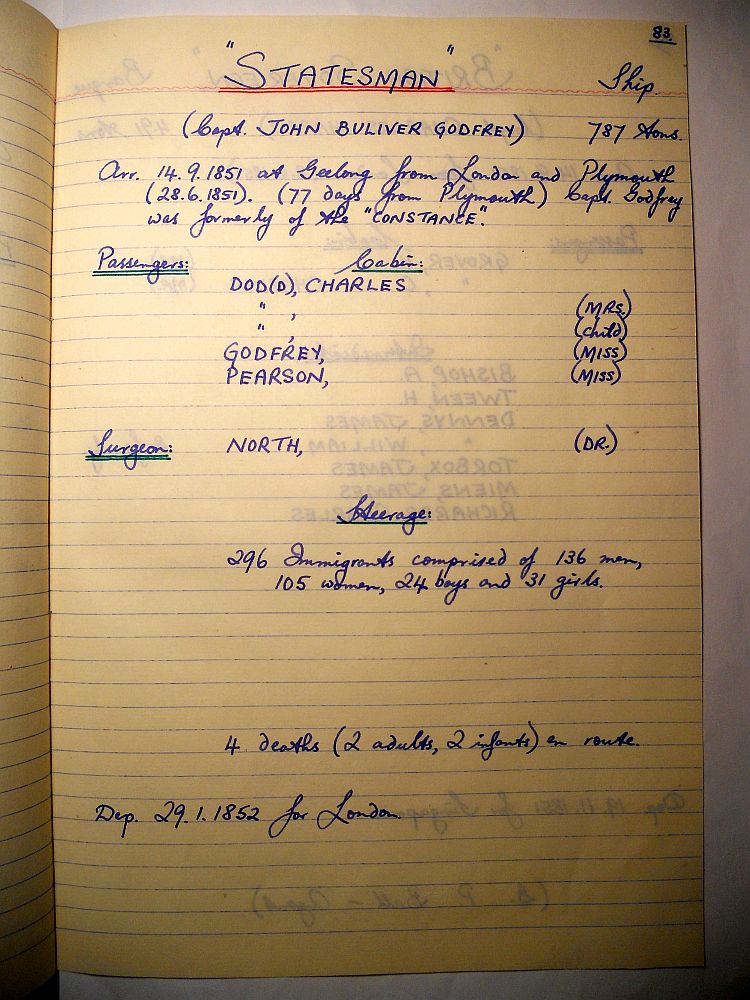 83.
"STATESMAN" Ship.
(Capt. JOHN BULIVER GODFREY) 787 tons.
Arr. 14.9.1851 at Geelong from London and Plymouth
(28.6.1851). (77 days from Plymouth) Capt. Godfrey
was formerly of the "CONSTANCE".
Passengers: Cabin:
DOD(D), CHARLES
" , (MRS.)
" , (Child)
GODFREY, (MISS)
PEARSON, (MISS)
Surgeon: NORTH, (DR.)
Steerage:
296 Immigrants comprised of 136 men,
105 women, 24 boys and 31 girls.
4 deaths (2 adults, 2 infants) en route.
Dep. 29.1.1852 for London.